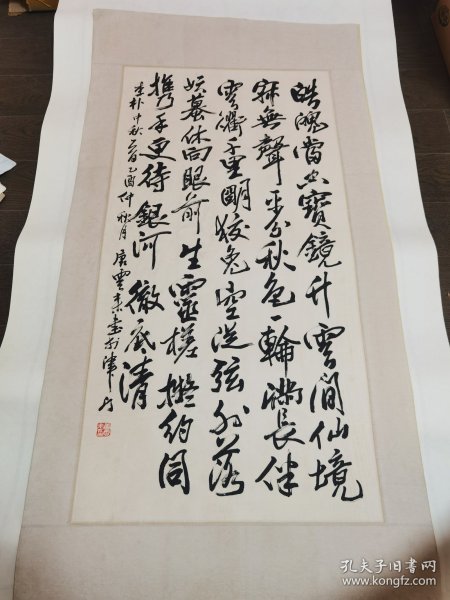 皓魄當空寶鏡升雲間仙境
寂無聲平分秋色一輪滿長伴
雲衢千里明狡兔空從弦外落
妖蟇休向眼前生靈槎擬約同
携手更待銀河徹底清
李朴中秋 乙酉仲秋月唐雲來書於津門
孔夫子旧书网
www.kongfz.com